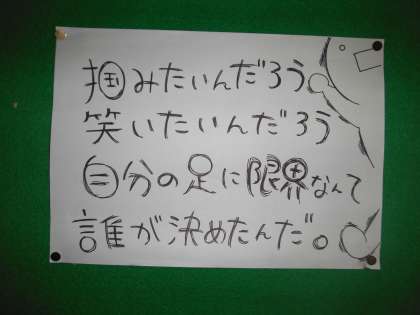 掴みたいんだろう
笑いたいんだろう
自分の足に限界なんて
誰が決めたんだ。